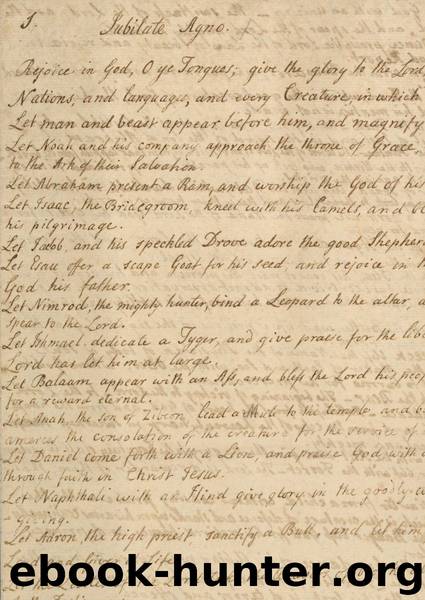 I.
Jubilate Agno.
Rejoice in God, O ye Tongues; give the glory to the Lord,
Nations, and languages, and every Creature, in which
Let man and beast appear before him, and magnify
Let Noah and his company approach the throne of Grace,
to the Ark of their Salvation.
Let Abraham present a Ram, and worship the God of his
Let Isaac, the Bridegroom, kneel with his Camels, and bl
his pilgrimage.
Let Jacob, and his speckled Drove adore the good Shepher
Let Esau offer a scape Goat for his seed, and rejoice in th
God his father.
Let Nimrod, the mighty hunter, bind a Leopard to the altar, a
spear to the Lord.
Let Ishmael dedicate a Tyger, and give praise for the libe
Lord has let him at large.
Let Balaam appear with an Ass, and bless the Lord his peop
for a reward eternal.
Let Anah, the son of Zibeon, lead a Mule to the temple, and bl
amerces the consolation of the creature for the service of
Let Daniel come forth with a Lion, and praise God with a
through faith in Christ Jesus.
Let Naphthali with an Hind give glory in the goodly w
Let Aaron, the high priest, sanctify a Bull, and let him
ebook-hunter.org